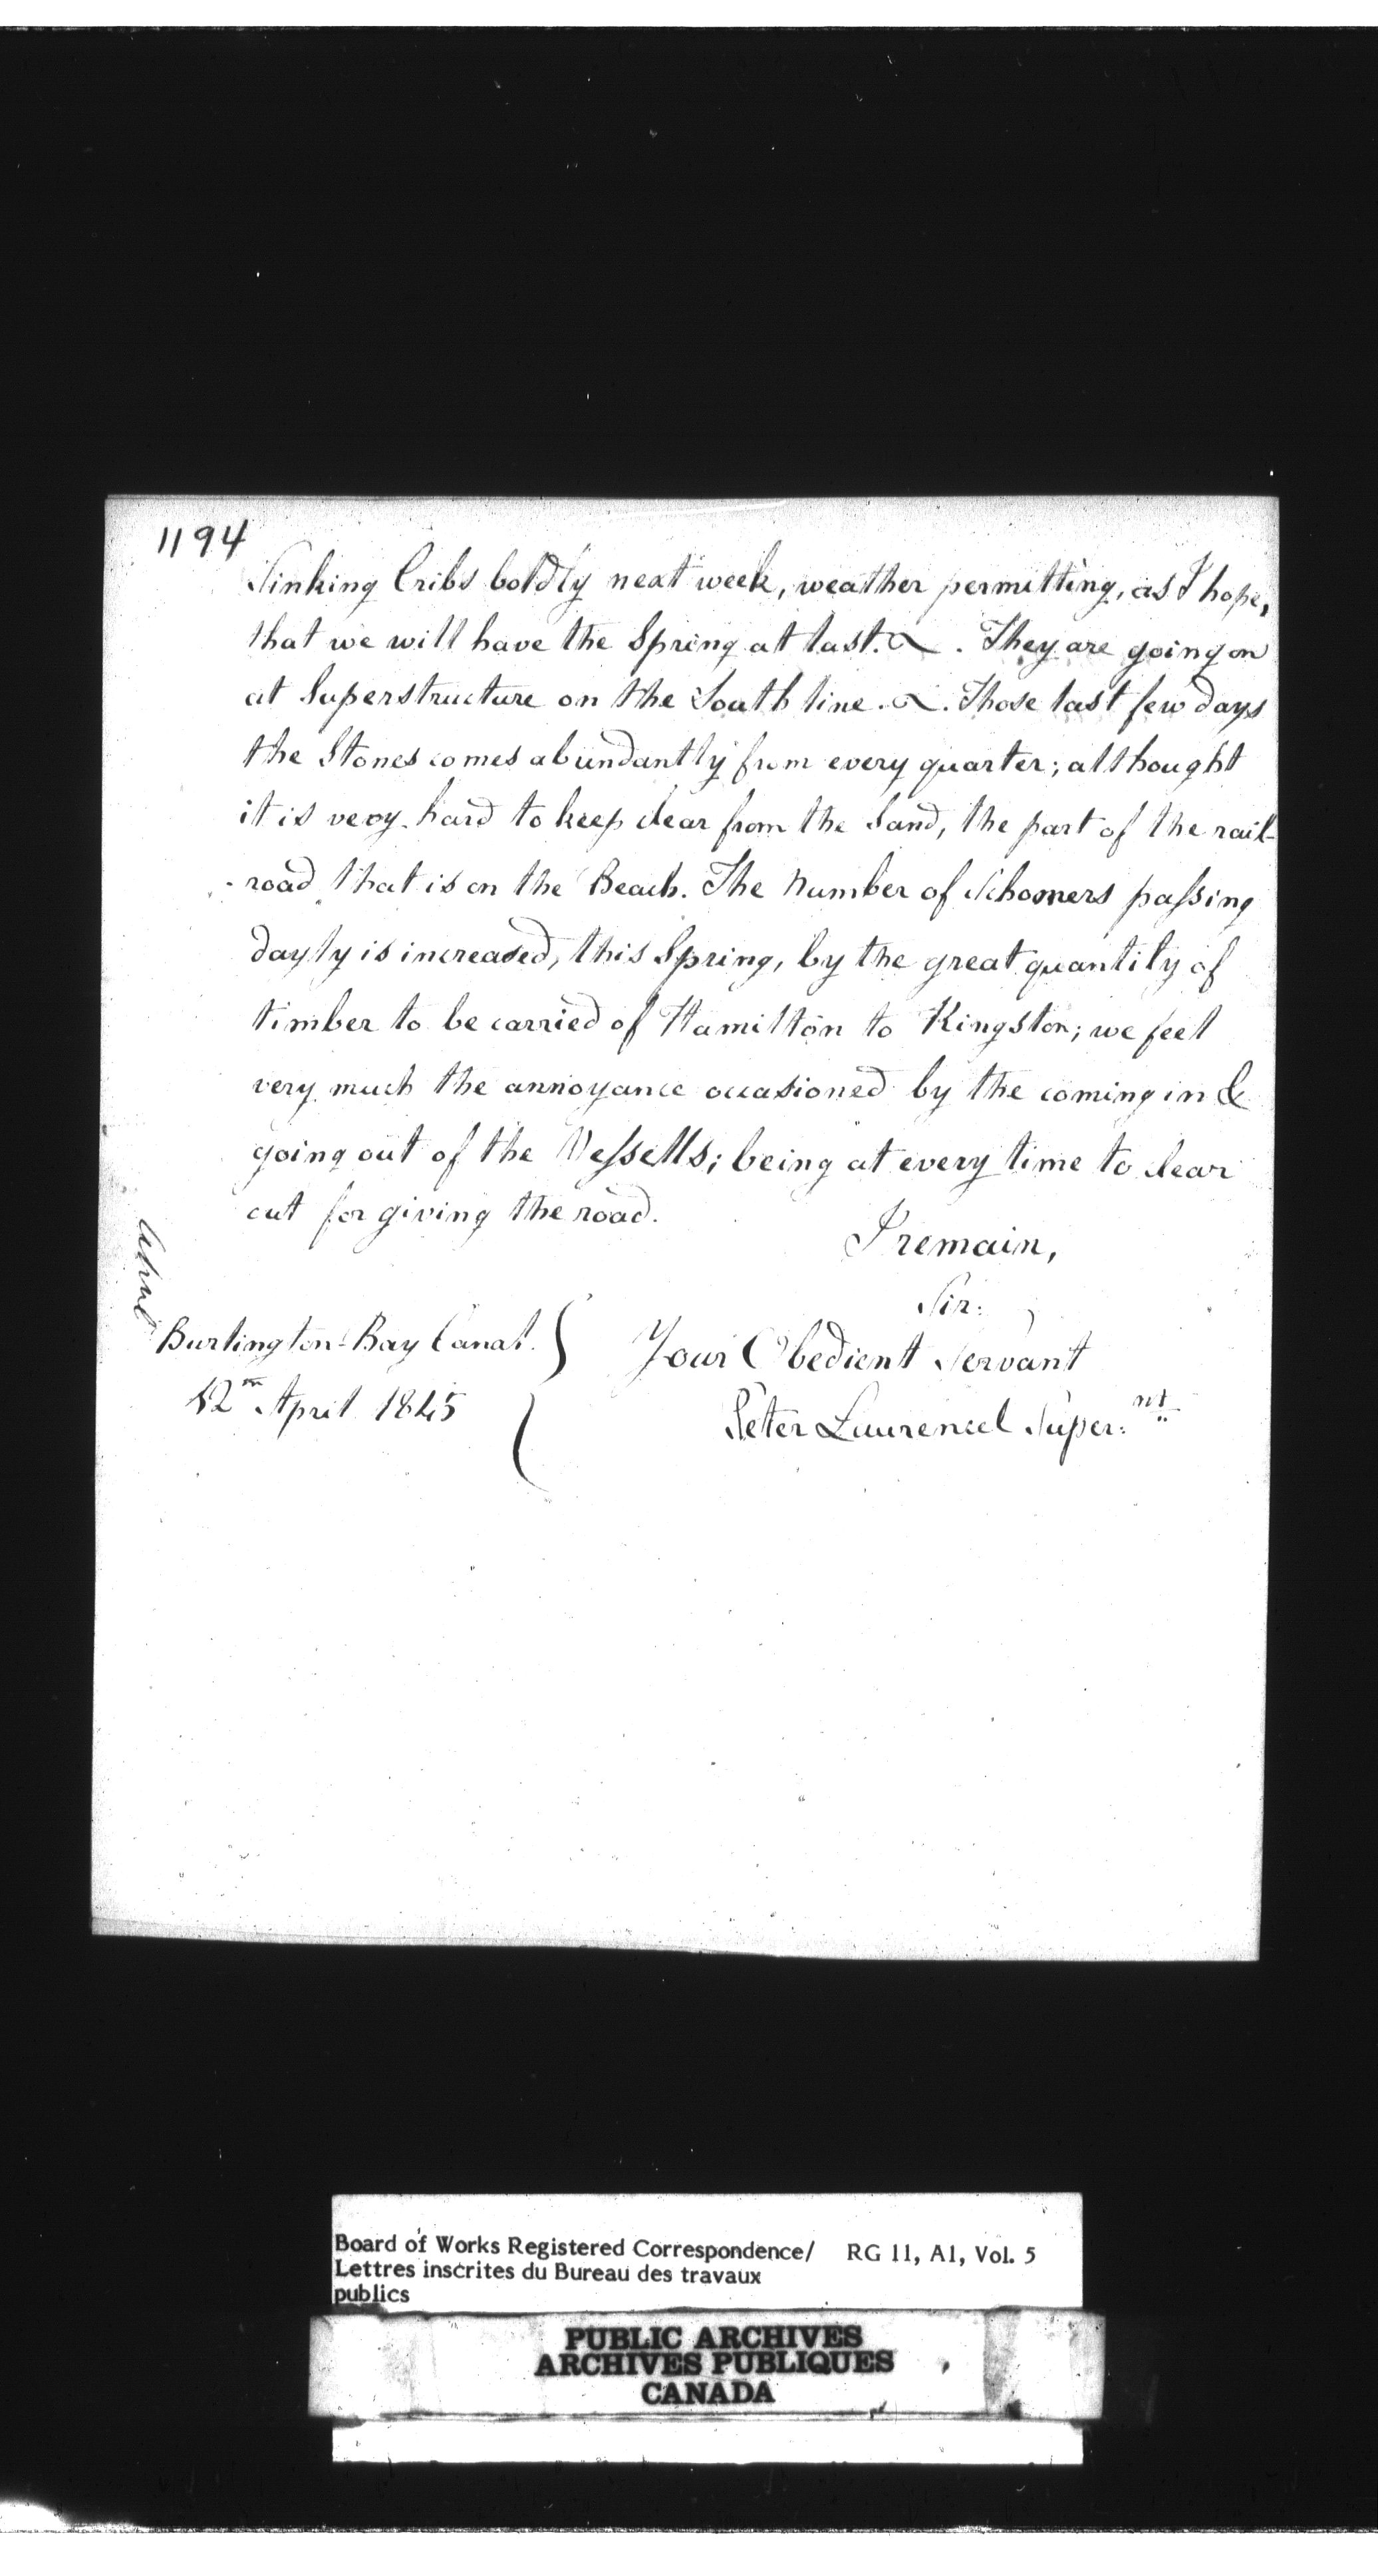 1194
Sinking Cribs boldly next week, weather permitting, as I hope,
that we will have the Spring at last. &. They are going on
at Superstructure on the South line. &. Those last few days
the Stones comes abundantly from every quarter; althought
it is very hard to keep clear from the Sand, the part of the rail-
-road that is on the Beach. The Number of Schooners passing
dayly is increased, this Spring, by the great quantity of
timber to be carried of Hamilton to Kingston; we feel
very much the annoyance occasioned by the coming in &
going out of the Vessells; being at every time to clear
out for giving the road.
I remain,
Sir:
Your Obedient Servant
Peter Laurencel Super:nt
Burlington-Bay Canal.
12th April 1845
Board of Works Registered Correspondence/ RG 11, A1, Vol. 5
Lettres inscrites du Bureau des travaux
publics
PUBLIC ARCHIVES
ARCHIVES PUBLIQUES
CANADA